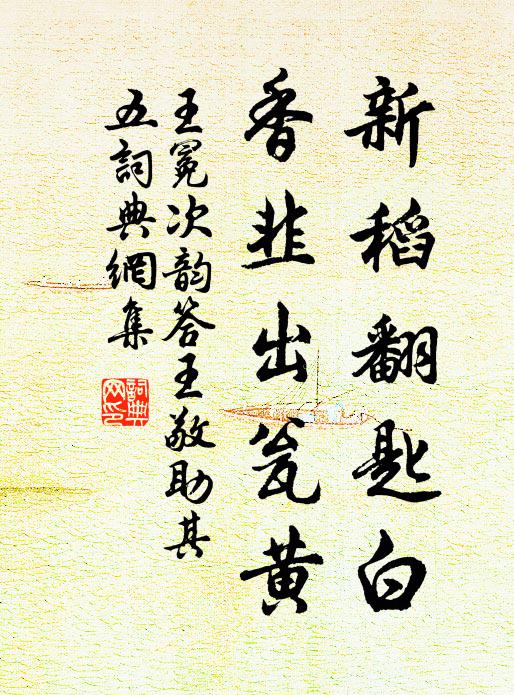 新稻翻匙白
香韭出瓮黄
王冕次韵答王敬助其
五詞典網集
詞典網印